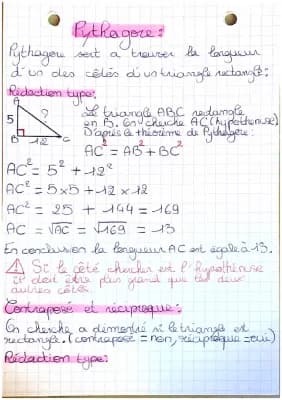 Pythagore:
Pythagore sert a trouver la longueur
d'un des côtés d'un triangle rectangle:
Rédaction type:
A
5
?
B 12 C
Le triangle ABC rectangle
en B. On cherche AC (hypoténuse)
D'après le théorème de Pythagore:
AC² = AB² + BC²
AC² = 5² + 12²
AC² = 5x5 + 12 x 12
AC² = 25 + 144 = 169
AC = √AC = √169 = 13
En conclusion la longueur AC est égale à 13.
! Si le côté chercher est l'hypothénuse
il doit être plus grand que les deux
autres côtés.
Contraposé et réciproque:
On cherche a démontré si le triangle est
rectangle. (contraposé = non, réciproque = oui)
Rédaction type: